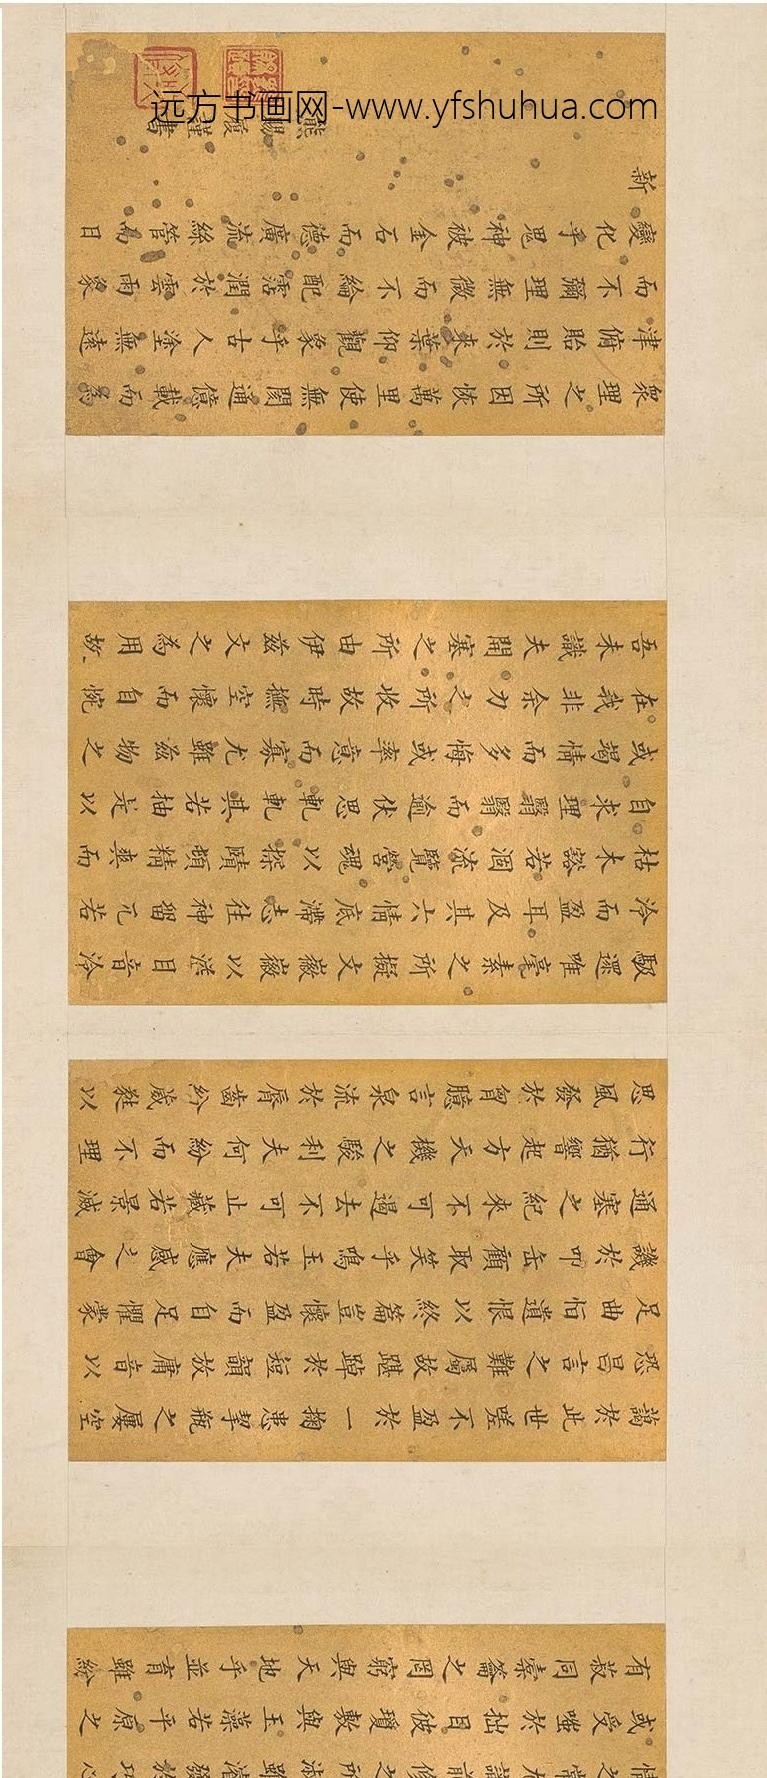 識前修之所淑雖濬發於巧心
或受嗤於拙目彼瓊敷與玉藻若平原之
有菽同橐籥之罔窮與天地乎並育雖紛
藹於此世嗟不盈於一掬患挈瓶之屢空
恐昌言之難屬故踸踔於短韻放庸音以
足曲恒遺恨以終篇豈懷盈而自足懼蒙
譏於叩缶顧取笑乎鳴玉若夫應感之會
通塞之紀來不可遏去不可止藏若景滅
行猶響起方天機之駿利夫何紛而不理
思風發於胷臆言泉流於脣齒紛葳蕤以
馺遝唯毫素之所擬文徽徽以溢目音泠
泠而盈耳及其六情底滯志往神留兀若
枯木豁若涸流覽營魂以探賾頓精爽而
自求理翳翳而逾伏思軋軋其若抽是以
或竭情而多悔或率意而寡尤雖茲物之
在我非余力之所收故時撫空懷而自惋
吾未識夫開塞之所由伊茲文之為用故
衆理之所因恢萬里使無閡通億載而為
津俯貽則於來葉仰觀象乎古人塗無遠
而不彌理無微而不綸配霑潤於雲雨象
變化乎鬼神被金石而德廣流絲管而日
新
熊賜履謹書
远方书画网-www.yfshuhua.com